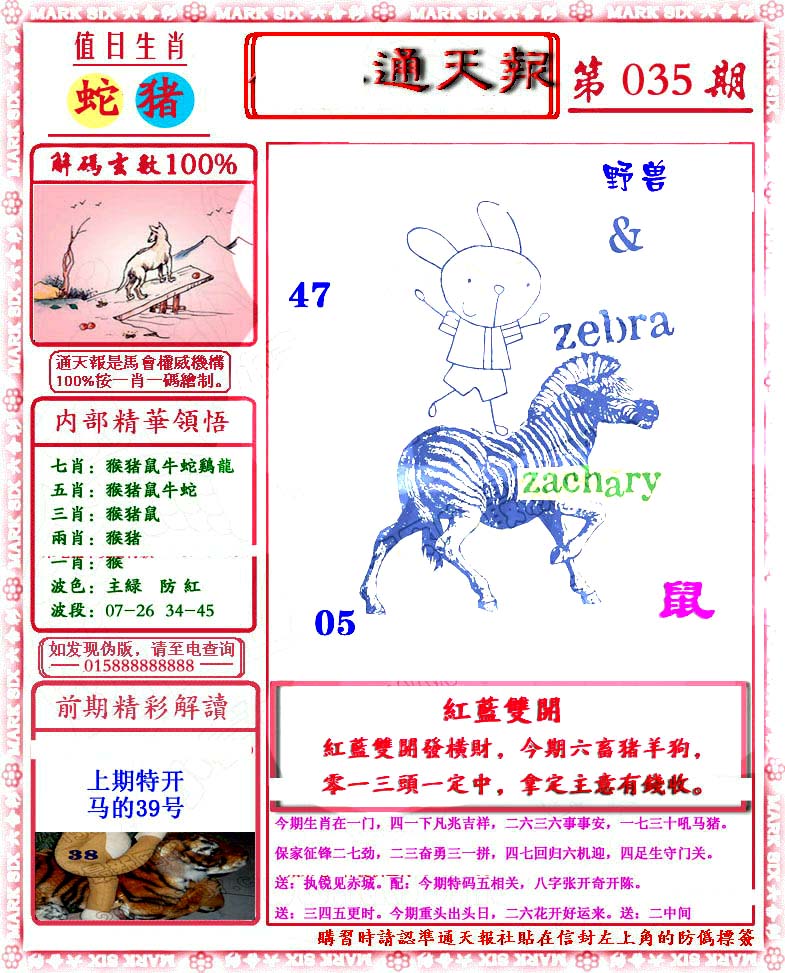 MARK SIX 六合彩
值日生肖
蛇 猪
通天報
第 035 期
解碼玄數100%
通天報是馬會權威機構
100%按一肖一碼繪制。
内部精華領悟
七肖：猴猪鼠牛蛇鷄龍
五肖：猴猪鼠牛蛇
三肖：猴猪鼠
兩肖：猴猪
一肖：猴
波色：主緑 防紅
波段：07-26 34-45
如发现伪版，请至电查询
015888888888
前期精彩解讀
上期特开
马的39号
38
野兽
&
47
zebra
zachary
鼠
05
紅藍雙開
紅藍雙開發橫財，今期六畜猪羊狗，
零一三頭一定中，拿定主意有錢收。
今期生肖在一门，四一下凡兆吉祥，二六三六事事安，一七三十吼马猪。
保家征锋二七劲，二三奋勇三一拼，四七回归六机迎，四足生守门关。
送：执镜见赤城。配：今期特码五相关，八字张开奇开陈。
送：三四五更时。今期重头出头日，二六花开好运来。送：二中间
購習時請認準通天報社貼在信封左上角的防僞標簽